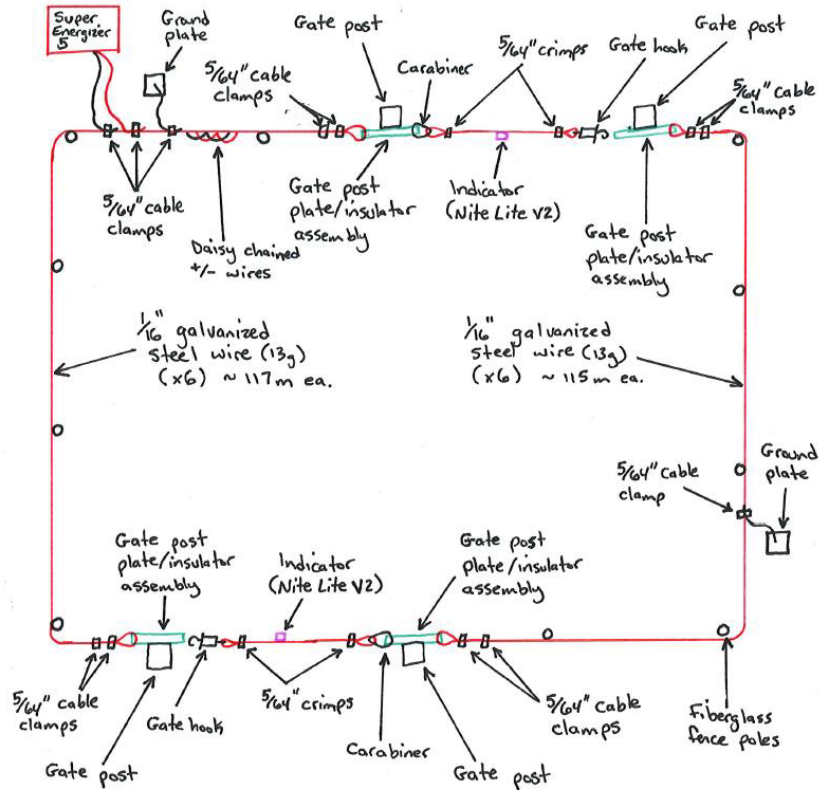 Super
Energizer
5
Ground
plate
Gate post
5/64" cable
clamps
Carabiner
5/64" crimps
Gate hook
Gate post
5/64" cable
clamps
5/64" cable
clamps
Daisy chained
+/- wires
Gate post
plate/insulator
assembly
Indicator
(Nite Lite V2)
Gate post
plate/insulator
assembly
1/16" galvanized
steel wire (13g)
(x6) ~ 117m ea.
1/16" galvanized
steel wire (13g)
(x6) ~ 115m ea.
5/64" Cable
clamp
Ground
plate
Gate post
plate/insulator
assembly
Indicator
(Nite Lite V2)
Gate post
plate/insulator
assembly
5/64" cable
clamps
Gate hook
5/64" crimps
Carabiner
5/64" cable
clamps
Fiberglass
fence poles
Gate post
Gate post